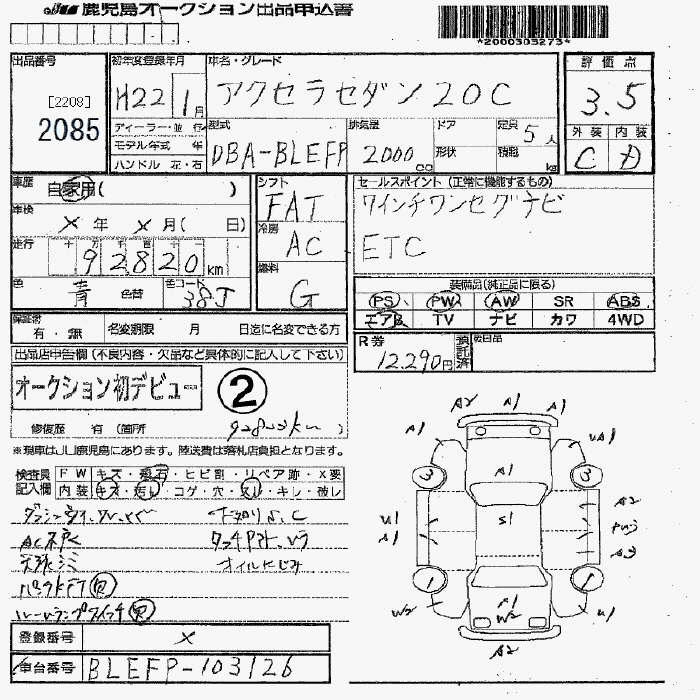 JU 鹿児島オークション出品申込書
*2000303273*
出品番号
[2208]
2085
初年度登録年月
H22 1月
車名・グレード
アクセラセダン 20C
評価点
3.5
外装 内装
C D
ディーラー・並行
モデル年式 年
ハンドル 左・右
型式
DBA-BLEFP
排気量
2000cc
ドア
形状
定員 5人
積載 kg
車歴 自家用( )
車検 × 年 × 月( 日)
走行 十万千百十一
92820km
色 青 色替
色コード 38J
シフト
FAT
冷房
AC
燃料
G
セールスポイント (正常に機能するもの)
ワインチワンセグナビ
ETC
装備品(純正品に限る)
PS PW AW SR ABS
エアB TV ナビ カワ 4WD
R券
12,290円
預託済
後日品
保証書
有・無
名変期限 月 日迄に名変できる方
出品店申告欄(不良内容・欠品など具体的に記入して下さい)
オークション初デビュー
②
修復歴 有(箇所 )
92820km
※現車はJU鹿児島にあります。陸送費は落札店負担となります。
検査員記入欄
FW キズ・飛石・ヒビ割・リペア跡・X要
内装 キズ・汚れ・コゲ・穴・スレ・キレ・破レ
天張シミ
オイルにじみ
ルームランプスイッチ欠
登録番号 ×
車台番号 BLEFP-103126
A2 A1 A1
A1 UA1
3 A1 3
U1 S1 A2
A1 A3
1 1
W2 A1 U1
W2
A2